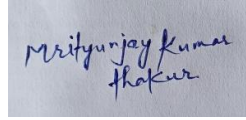 Mrityunjay Kumar
thakur